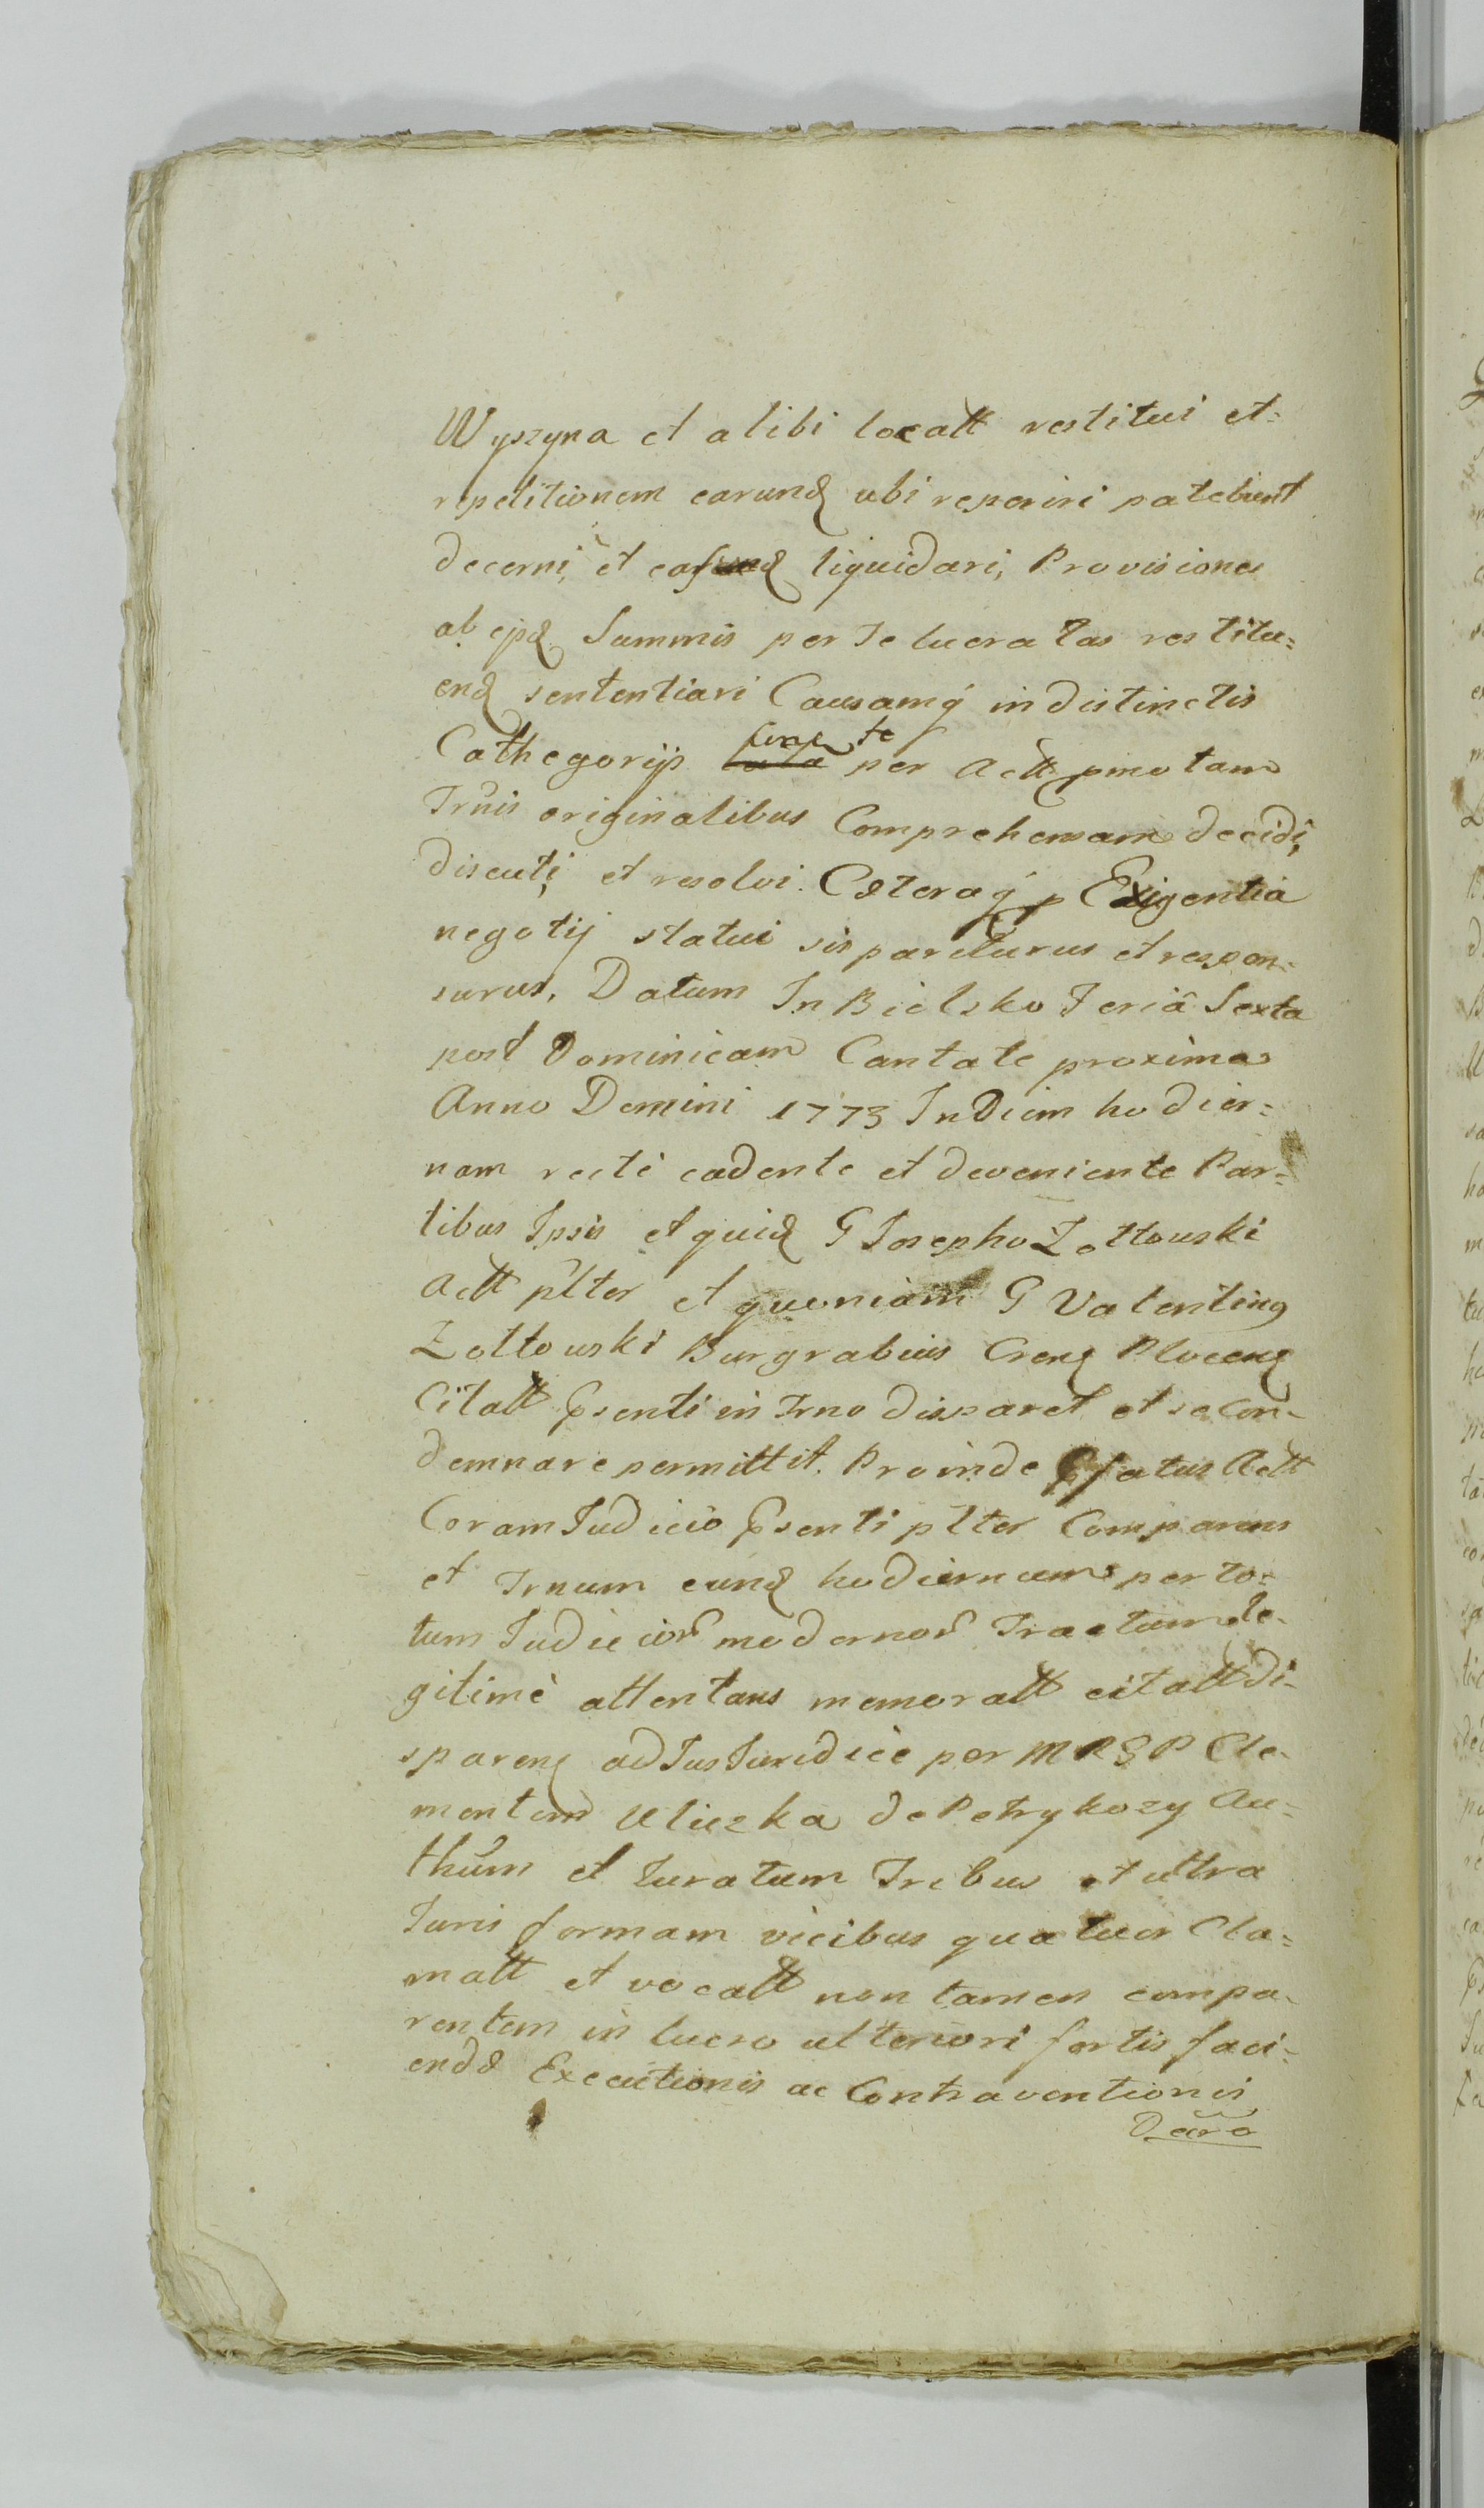 Wyszyna et alibi locatt restitui et
repetitionem earund ubi reperiri patebunt
decerni, et easd liquidari, Provisiones
ab ejsd Summis per Te lucratas restitu=
end sententiari Causamq in distinctis
Cathegorijs per Actt pmotam
Trnis originalibus Comprehensam decidi,
discuti, et resolvi. Cæteraq p Exigentia
negotij statui sis pariturus et respon=
surus. Datum In Bielsko Feriâ Sexta
post Dominicam Cantate proxima
Anno Domini 1773 In Diem hodier=
nam rectè cadente et deveniente Par=
tibus Ipsis et quid G Josepho Zottowski
Actt plter et quoniam G Valentinus
Zottowski Burgrabius Crens Plocens
Citatt Psenti in Trno disparet et se Con=
demnare permittit. Proinde Pfatus Actt
Coram Judicio Psenti plter Comparens
et Trnum eund hodiernum per to=
tum Judicior modernor Tractum le=
gitimè attentans memoratt citatt di=
sparens ad Jus Juridicè per MRSP Cle=
mentem Uliczka de Petrykozy Au=
thum et Juratum Tribus et ultra
Juris formam vicibus quatuor Cla=
matt et vocatt non tamen compa=
rentem in lucro ulteriori fortis faci=
endæ Executionis ac Contraventionis